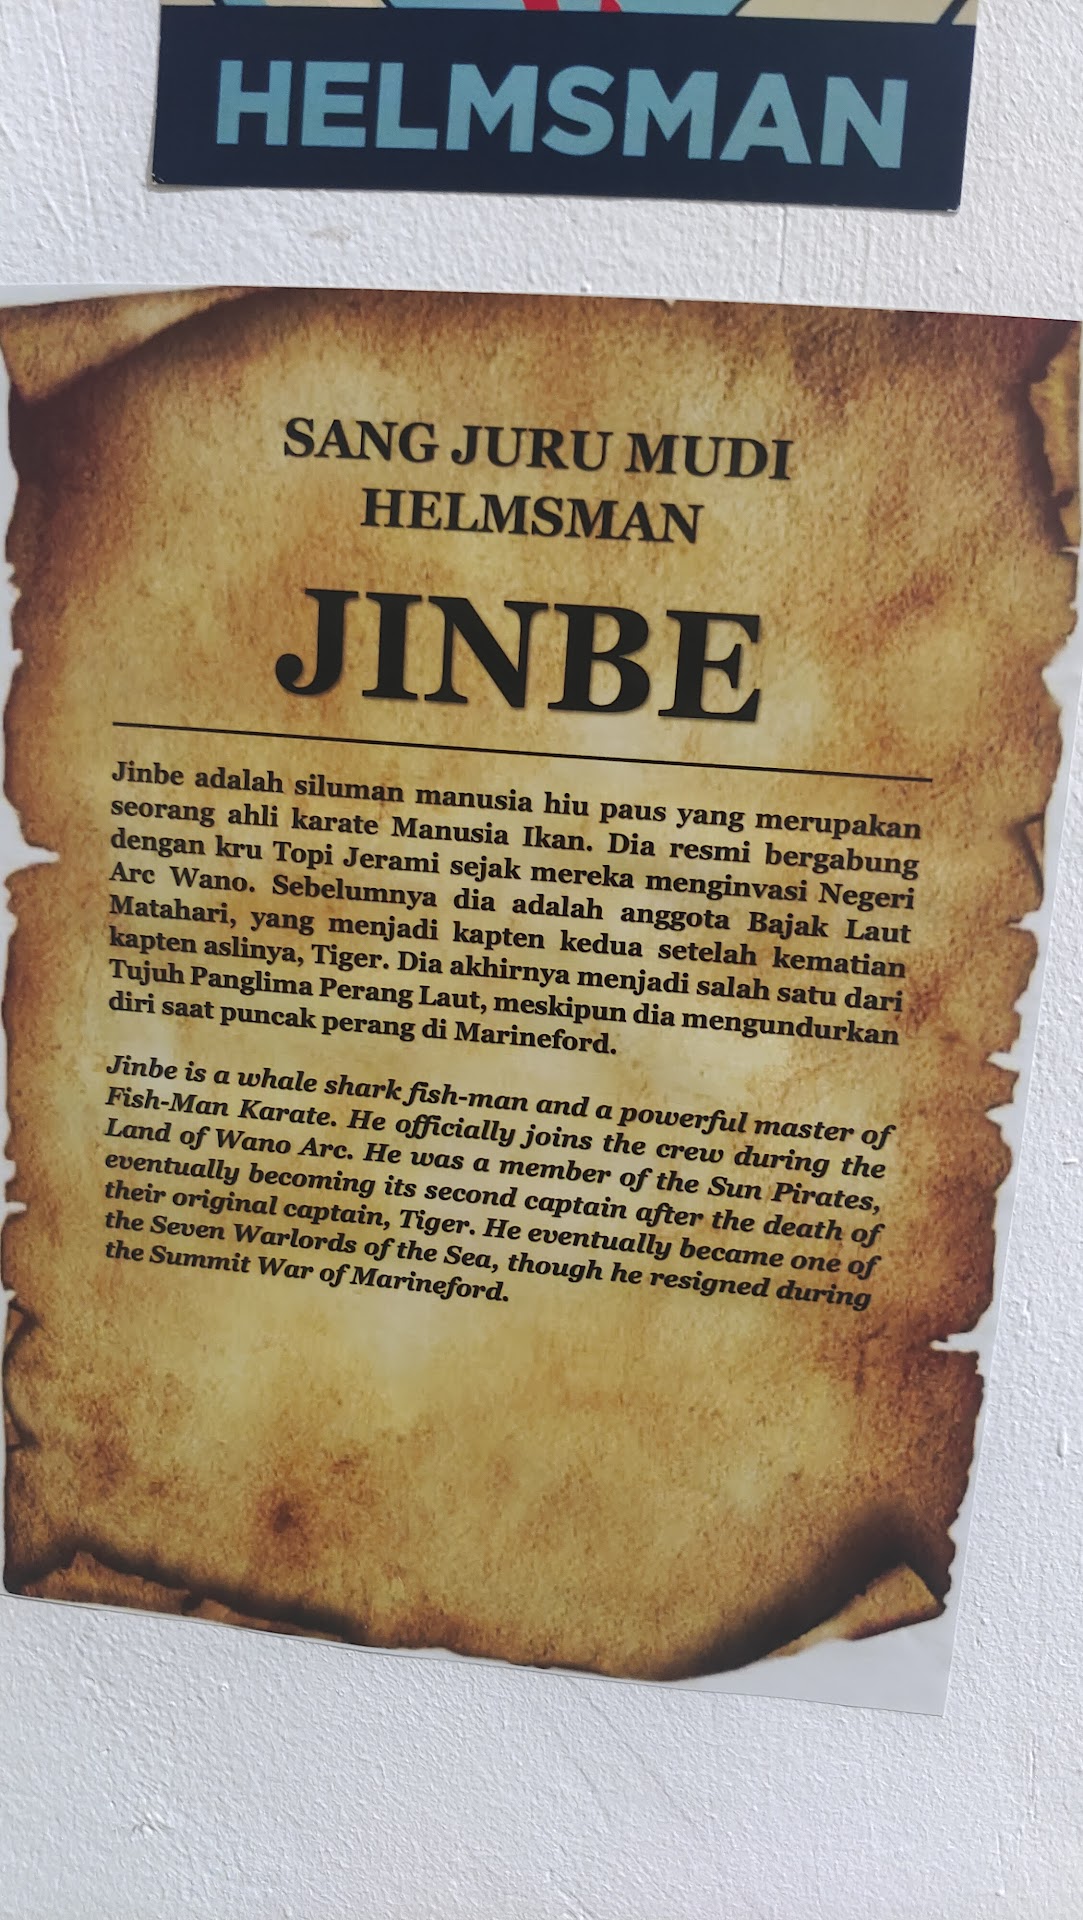 HELMSMAN
SANG JURU MUDI
HELMSMAN
JINBE
Jinbe adalah siluman manusia hiu paus yang merupakan
seorang ahli karate Manusia Ikan. Dia resmi bergabung
dengan kru Topi Jerami sejak mereka menginvasi Negeri
Arc Wano. Sebelumnya dia adalah anggota Bajak Laut
Matahari, yang menjadi kapten kedua setelah kematian
kapten aslinya, Tiger. Dia akhirnya menjadi salah satu dari
Tujuh Panglima Perang Laut, meskipun dia mengundurkan
diri saat puncak perang di Marineford.
Jinbe is a whale shark fish-man and a powerful master of
Fish-Man Karate. He officially joins the crew during the
Land of Wano Arc. He was a member of the Sun Pirates,
eventually becoming its second captain after the death of
their original captain, Tiger. He eventually became one of
the Seven Warlords of the Sea, though he resigned during
the Summit War of Marineford.